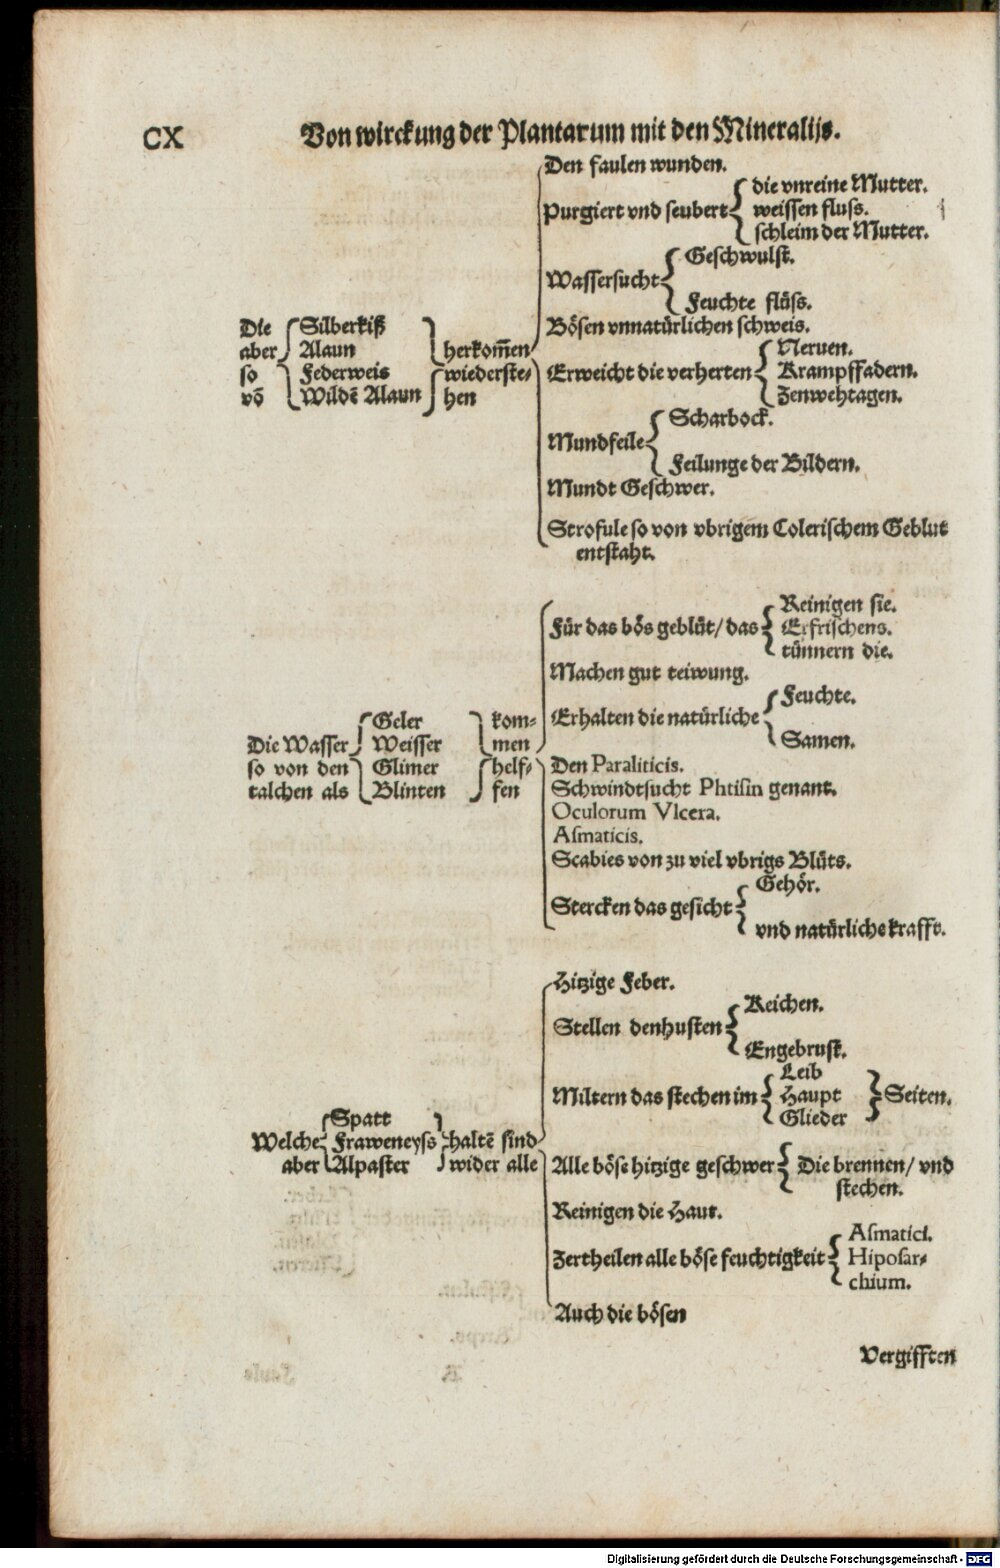 CX
Von wirckung der Plantarum mit den Mineralijs.
Die
aber
so
vō
Silberkiß
Alaun
Federweis
Wildē Alaun
herkom̄en
wiederste-
hen
Den faulen wunden.
Purgiert vnd seubert
die vnreine Mutter.
weissen fluss.
schleim der Mutter.
Wassersucht
Geschwulst.
Feuchte flüss.
Bösen vnnatürlichen schweis.
Erweicht die verherten
Neruen.
Krampffadern.
Zenwehtagen.
Mundfeile
Scharbock.
Feilunge der Bildern.
Mundt Geschwer.
Strofule so von vbrigem Colerischem Geblut
entstaht.
Die Wasser
so von den
talchen als
Geler
Weisser
Glimer
Blinten
kom-
men
helf-
fen
Für das bös geblüt/ das
Reinigen sie.
Erfrischens.
tünnern die.
Machen gut teiwung.
Erhalten die natürliche
Feuchte.
Samen.
Den Paraliticis.
Schwindtsucht Phtisin genant.
Oculorum Vlcera.
Asmaticis.
Scabies von zu viel vbrigs Blüts.
Stercken das gesicht
Gehör.
vnd natürliche krafft.
Welche
aber
Spatt
Fraweneyss
Alpaster
haltē sind
wider alle
Hitzige Feber.
Stellen den husten
Keichen.
Engebrust.
Miltern das stechen im
Leib
Haupt
Glieder
Seiten.
Alle böse hitzige geschwer
Die brennen/ vnd
stechen.
Reinigen die Haut.
Zertheilen alle böse feuchtigkeit
Asmatici.
Hiposar-
chium.
Auch die bösen
Vergifften
Digitalisierung gefördert durch die Deutsche Forschungsgemeinschaft - DFG